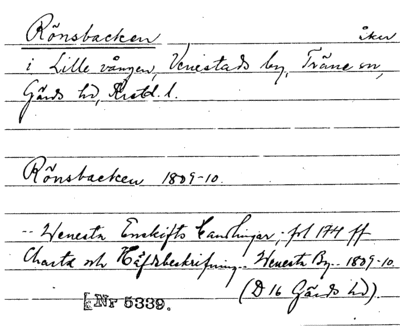 Rönsbacken åker
i Lille vången, Venestads by, Träne sn,
Gärds hd, Krstd. l.
Rönsbacken 1809-10.
-- Wenesta Enskifts Handlingar; fol 174 ff
Charta och Häfdebeskrifning.. Wenesta By.. 1809-10.
(D 16 Gärds hd).
[Nr 5339.